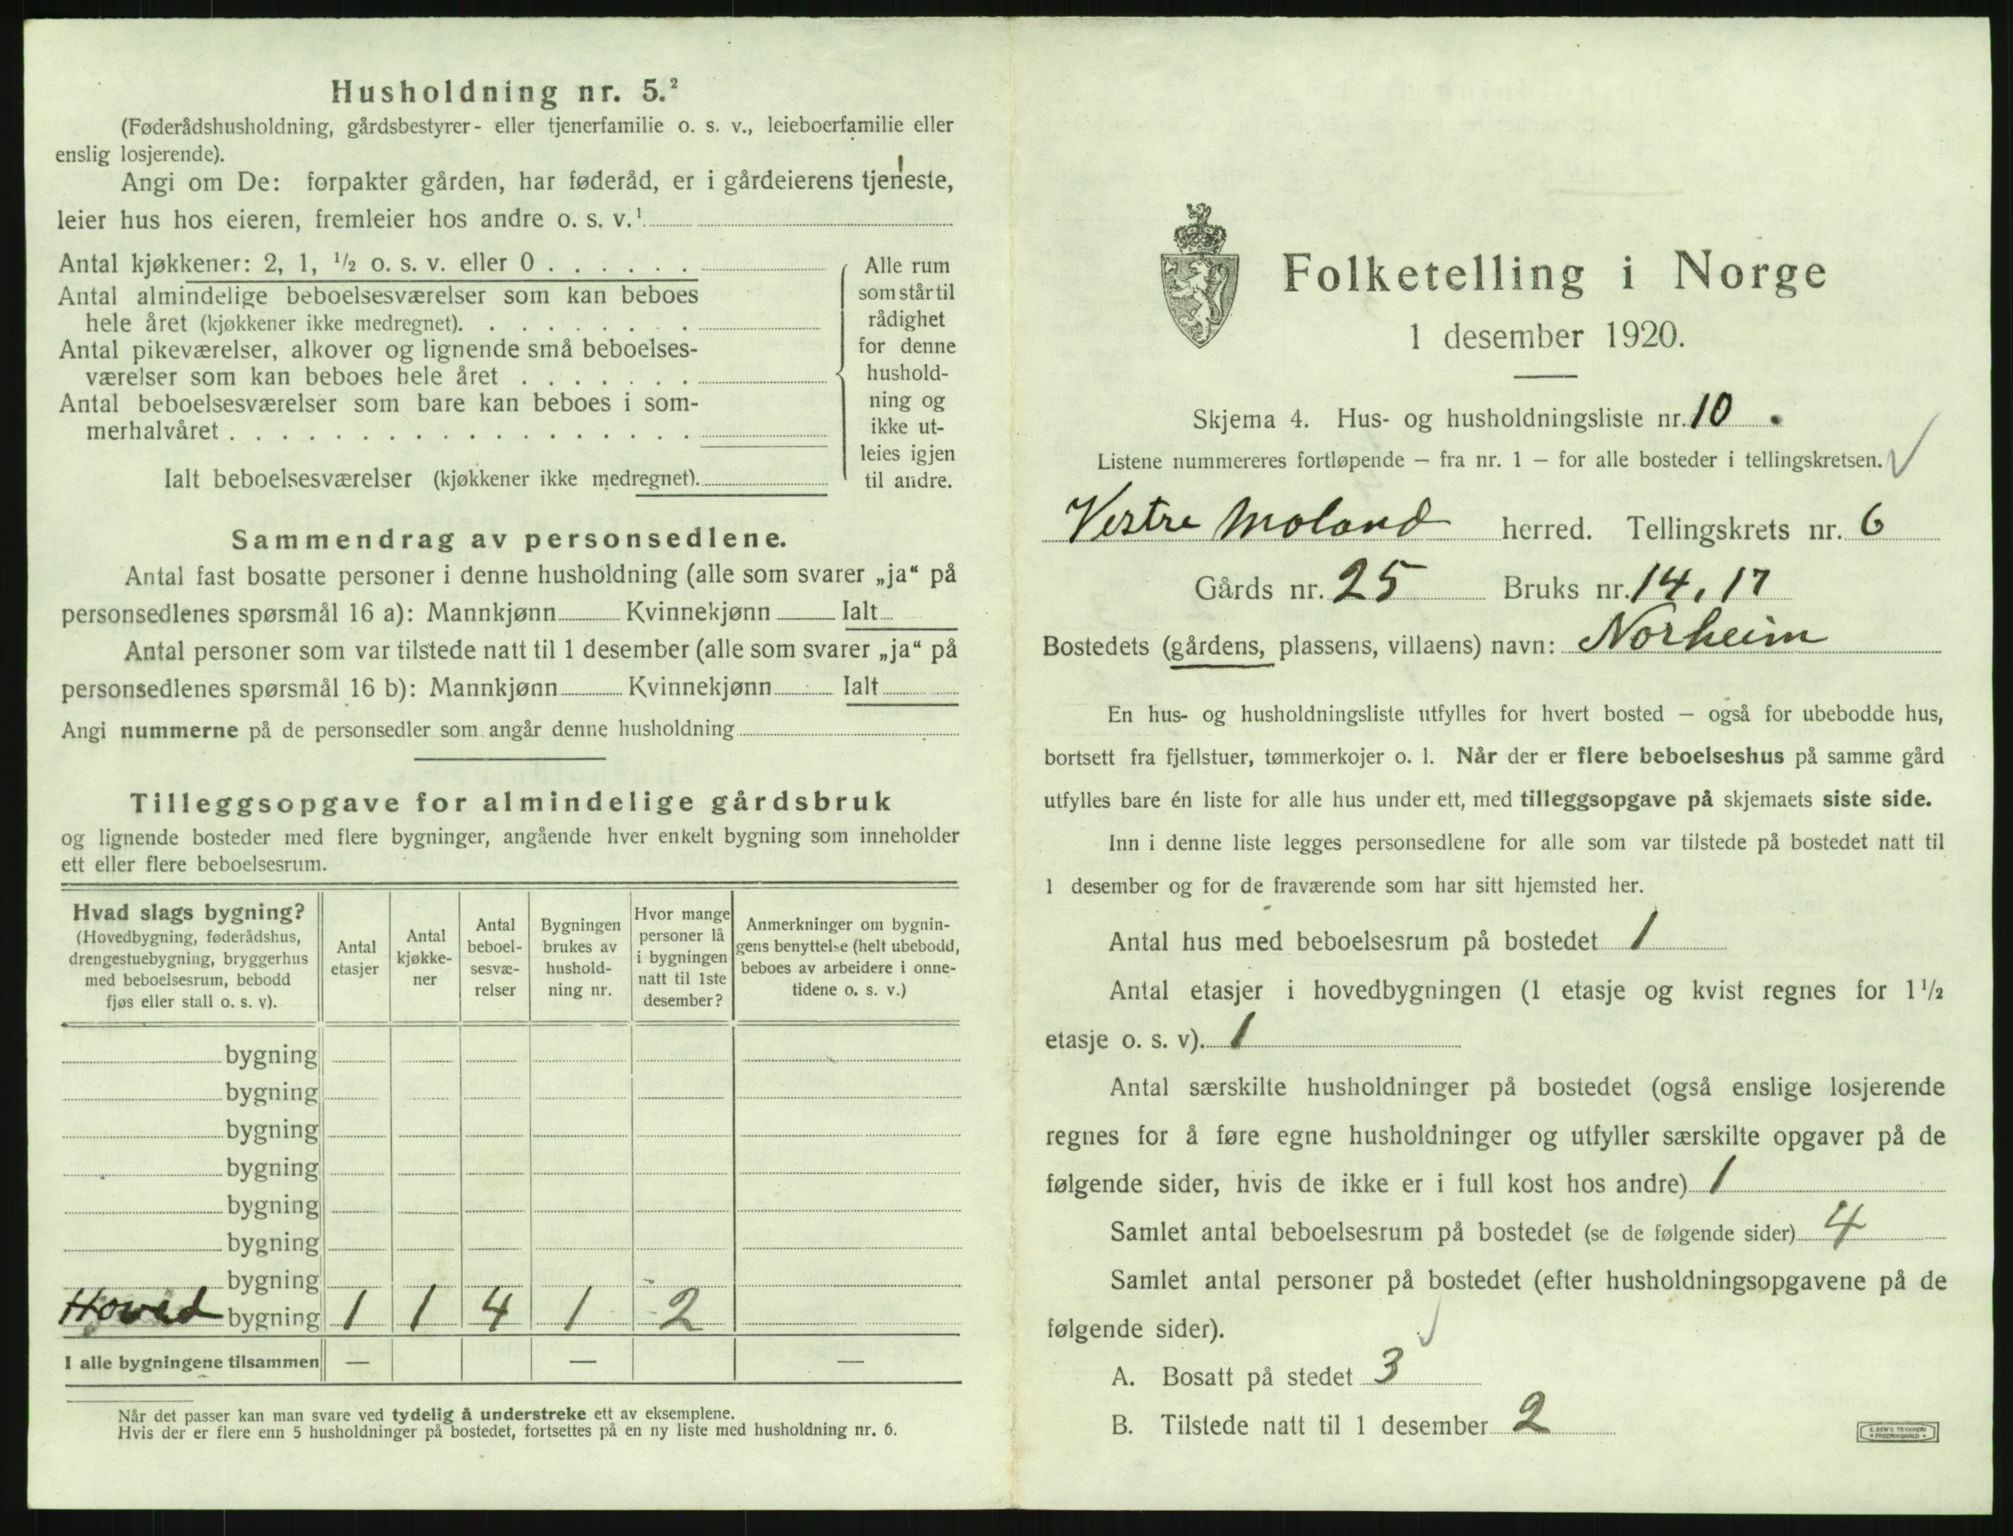 Husholdning nr. 5.²
(Føderådshusholdning, gårdsbestyrer- eller tjenerfamilie o. s. v., leieboerfamilie eller
enslig losjerende).
Angi om De: forpakter gården, har føderåd, er i gårdeierens tjeneste,
leier hus hos eieren, fremleier hos andre o. s. v.¹
Antal kjøkkener: 2, 1, ½ o. s. v. eller 0 . . . . . .
Antal almindelige beboelsesværelser som kan beboes
hele året (kjøkkener ikke medregnet). . . . . . . . .
Antal pikeværelser, alkover og lignende små beboelses-
værelser som kan beboes hele året . . . . . . .
Antal beboelsesværelser som bare kan beboes i som-
merhalvåret . . . . . . . . . . . . . . . . . .
Ialt beboelsesværelser (kjøkkener ikke medregnet).
Alle rum
som står til
rådighet
for denne
hushold-
ning og
ikke ut-
leies igjen
til andre.
Sammendrag av personsedlene.
Antal fast bosatte personer i denne husholdning (alle som svarer „ja“ på
personsedlenes spørsmål 16 a): Mannkjønn Kvinnekjønn Ialt
Antal personer som var tilstede natt til 1 desember (alle som svarer „ja“ på
personsedlenes spørsmål 16 b): Mannkjønn Kvinnekjønn Ialt
Angi nummerne på de personsedler som angår denne husholdning
Tilleggsopgave for almindelige gårdsbruk
og lignende bosteder med flere bygninger, angående hver enkelt bygning som inneholder
ett eller flere beboelsesrum.
Hvad slags bygning?
(Hovedbygning, føderådshus,
drengestuebygning, bryggerhus
med beboelsesrum, bebodd
fjøs eller stall o. s. v).
Antal
etasjer
Antal
kjøkke-
ner
Antal
beboel-
sesvæ-
relser
Bygningen
brukes av
hushold-
ning nr.
Hvor mange
personer lå
i bygningen
natt til 1ste
desember?
Anmerkninger om bygnin-
gens benyttelse (helt ubebodd,
beboes av arbeidere i onne-
tidene o. s. v.)
bygning
bygning
bygning
bygning
bygning
bygning
bygning
Hoved bygning 1 1 4 1 2
I alle bygningene tilsammen — — —
Når det passer kan man svare ved tydelig å understreke ett av eksemplene.
Hvis der er flere enn 5 husholdninger på bostedet, fortsettes på en ny liste med husholdning nr. 6.
Folketelling i Norge
1 desember 1920.
Skjema 4. Hus- og husholdningsliste nr. 10
Listene nummereres fortløpende — fra nr. 1 — for alle bosteder i tellingskretsen.
Vestre Moland herred. Tellingskrets nr. 6
Gårds nr. 25 Bruks nr. 14, 17
Bostedets (gårdens, plassens, villaens) navn: Norheim
En hus- og husholdningsliste utfylles for hvert bosted — også for ubebodde hus,
bortsett fra fjellstuer, tømmerkojer o. l. Når der er flere beboelseshus på samme gård
utfylles bare én liste for alle hus under ett, med tilleggsopgave på skjemaets siste side.
Inn i denne liste legges personsedlene for alle som var tilstede på bostedet natt til
1 desember og for de fraværende som har sitt hjemsted her.
Antal hus med beboelsesrum på bostedet 1
Antal etasjer i hovedbygningen (1 etasje og kvist regnes for 1½
etasje o. s. v). 1
Antal særskilte husholdninger på bostedet (også enslige losjerende
regnes for å føre egne husholdninger og utfyller særskilte opgaver på de
følgende sider, hvis de ikke er i full kost hos andre) 1
Samlet antal beboelsesrum på bostedet (se de følgende sider) 4
Samlet antal personer på bostedet (efter husholdningsopgavene på de
følgende sider).
A. Bosatt på stedet 3
B. Tilstede natt til 1 desember 2